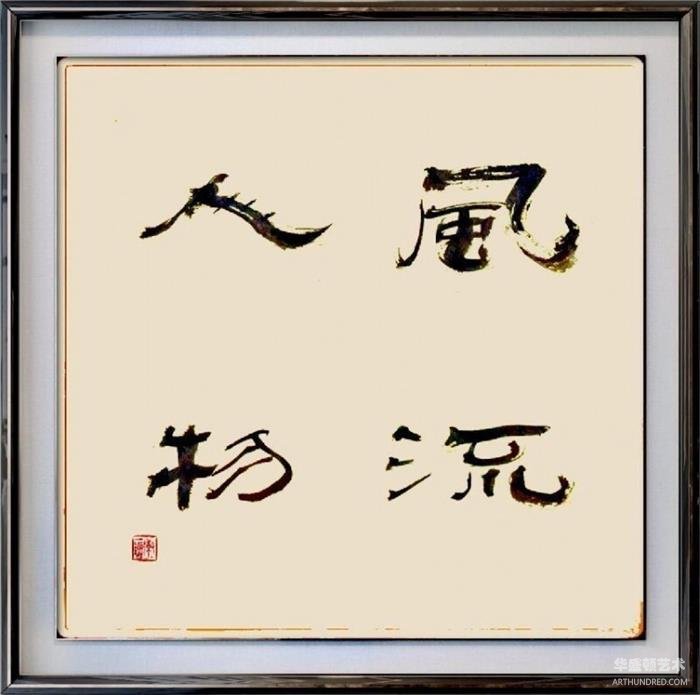 風流
人物
华盛顿艺术
ARTHUNDRED.COM